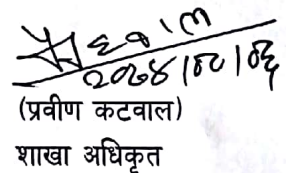 २०७४।०८।०६
(प्रवीण कटवाल)
शाखा अधिकृत